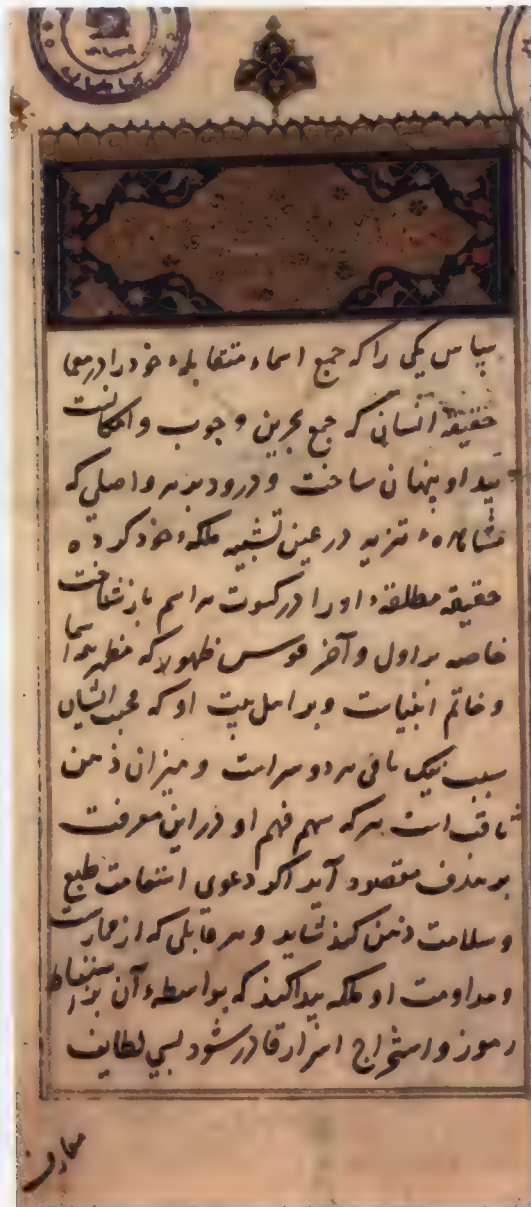 سپاس یکی را که جمع اسماء متقابلهٔ خود را در معما
حقیقة انسانی که جمع بحرین وجوب و امکانست
پیدا و پنهان ساخت و درود بر هر واصلی که
مشاهدهٔ تنزیه در عین تشبیه ملکهٔ خود کرده
حقیقة مطلقهٔ او را در کسوت هر اسم بازشناخت
خاصه بر اول و آخر قوس ظهور که مظهر اسما
و خاتم انبیاست و بر اهل بیت او که محبت ایشان
سبب نیک نامی هر دو سراست و میزان ذهن
ثاقب است هر که سهم فهم او در این معرفت
بر هدف مقصود آید اگر دعوی استقامت طبع
و سلامت ذهن کند شاید و هر قابلی که از ممارست
و مداومت او ملکه پیدا کند که بواسطهٔ آن بر استنباط
رموز و استخراج اسرار قادر شود بسی لطایف
معارف